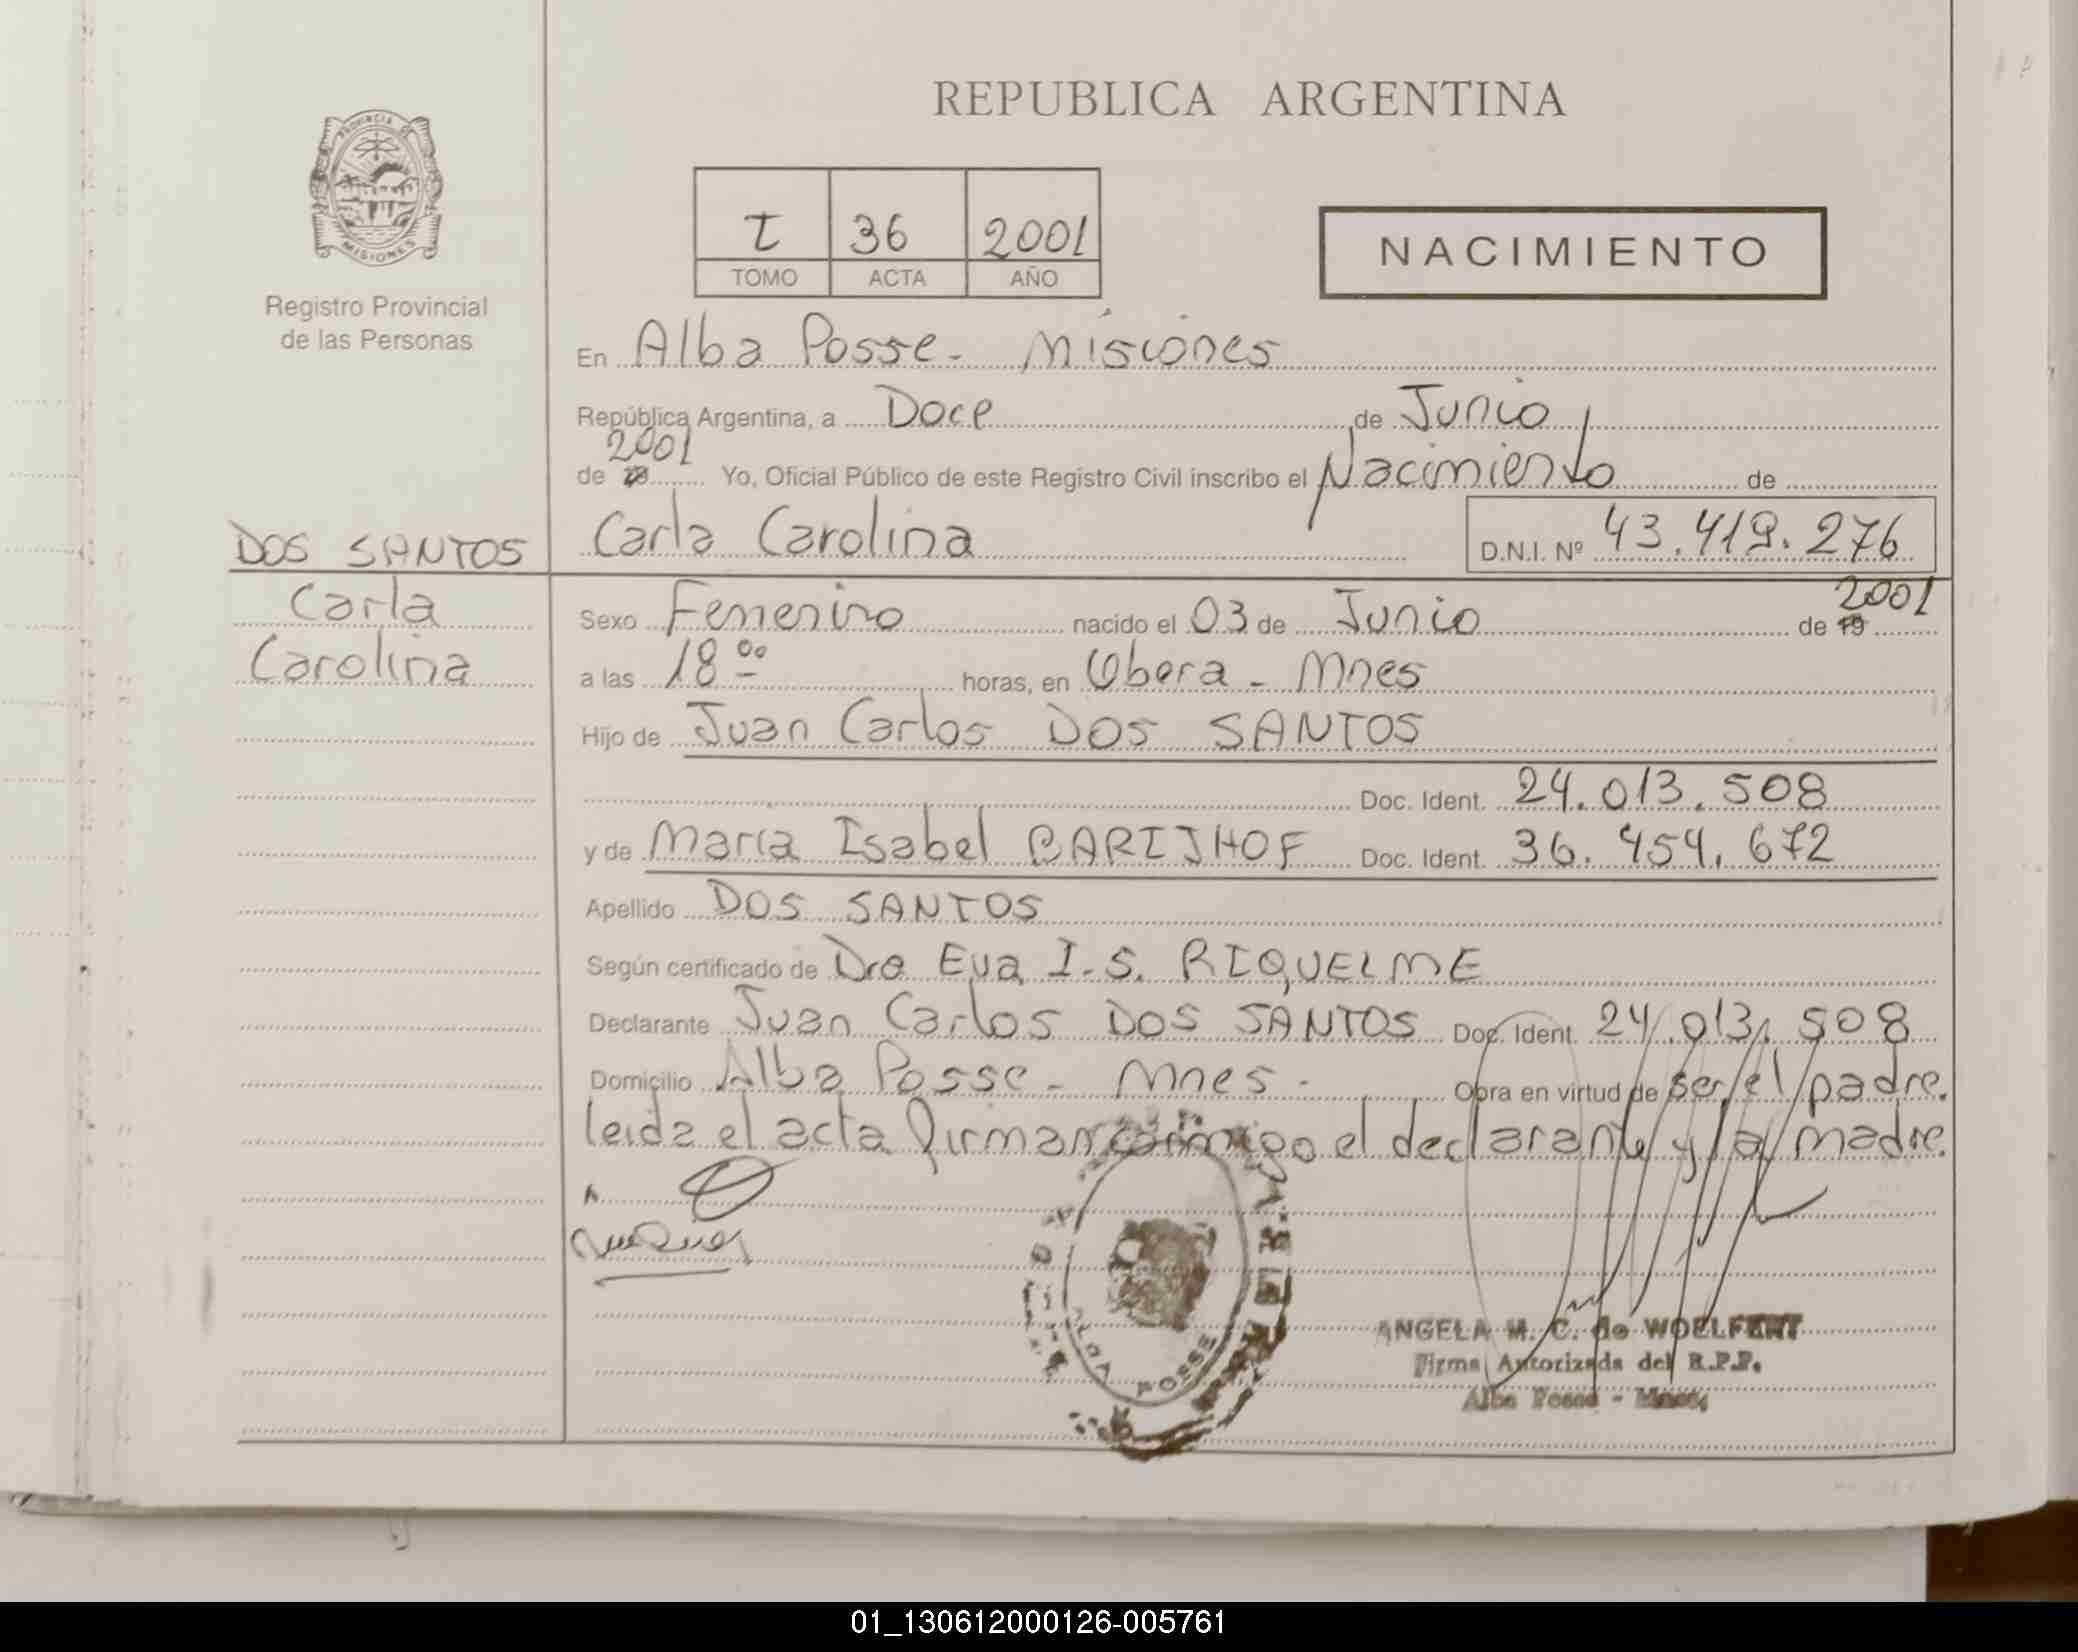 REPUBLICA ARGENTINA
PROVINCIA DE
MISIONES
Registro Provincial
de las Personas
I 36 2001
TOMO ACTA AÑO
NACIMIENTO
En Alba Posse - Misiones
República Argentina, a Doce de Junio
2001
de 19 Yo, Oficial Público de este Registro Civil inscribo el Nacimiento de
DOS SANTOS
Carla
Carolina
Carla Carolina D.N.I. Nº 43.419.276
Sexo Femenino nacido el 03 de Junio de 19 2001
a las 18 00 horas, en Obera - Mnes
Hijo de Juan Carlos DOS SANTOS
Doc. Ident. 24.013.508
y de Maria Isabel BARIJHOF Doc. Ident. 36.454.672
Apellido DOS SANTOS
Según certificado de Dra Eva I.S. RIQUELME
Declarante Juan Carlos DOS SANTOS Doc. Ident. 24.013.508
Domicilio Alba Posse - Mnes. Obra en virtud de ser el padre.
leida el acta firman conmigo el declarante y la madre.
ALBA POSSE
ANGELA M. C. de WOELFERT
Firma Autorizada del R.P.P.
Alba Posse - Mnes.
01_130612000126-005761